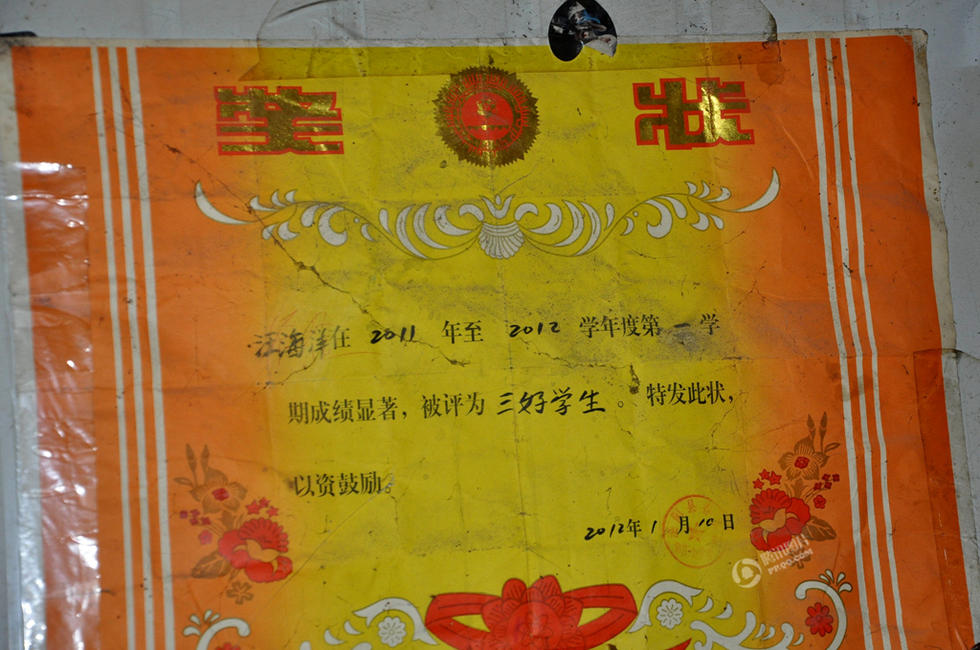 奖状
汪海洋在 2011 年至 2012 学年度第 一 学
期成绩显著，被评为 三好学生。特发此状，
以资鼓励。
2012年1月10日
腾讯图片
PP.QQ.COM